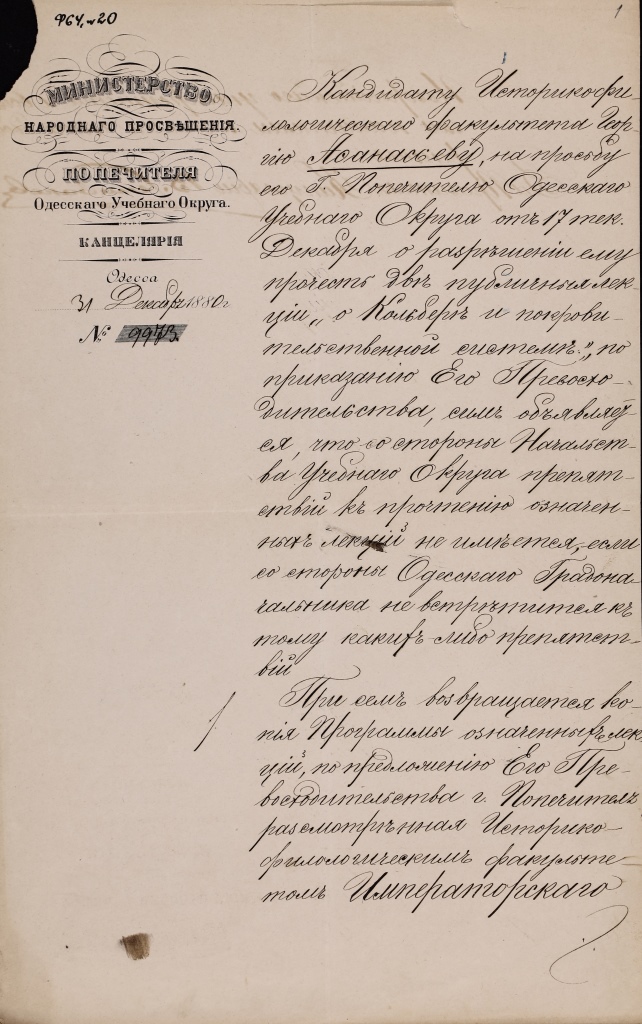 Ф64, №20
1
МИНИСТЕРСТВО
НАРОДНАГО ПРОСВѢЩЕНІЯ.
ПОПЕЧИТЕЛЯ
Одесскаго Учебнаго Округа.
КАНЦЕЛЯРІЯ
Одесса
31 Декабря 1880 г
№ 9973.
Кандидату Историко-фи-
лологическаго факультета Геор-
гію Аѳанасьеву, на просьбу
его Г. Попечителю Одесскаго
Учебнаго Округа отъ 17 тек.
Декабря о разрѣшеніи ему
прочесть двѣ публичныя лек-
ціи „о Кольберѣ и покрови-
тельственной системѣ“, по
приказанію Его Превосхо-
дительства, симъ объявляет-
ся, что со стороны Начальст-
ва Учебнаго Округа препят-
ствій къ прочтенію означен-
ныхъ лекцій не имѣется, если
со стороны Одесскаго Градона-
чальника не встрѣтится къ
тому какихъ-либо препятст-
вій
При семъ возвращается ко-
пія Программы означенныхъ лек-
цій, по предложенію Его Пре-
восходительства г. Попечителя
разсмотрѣнная Историко-
филологическимъ факульте-
томъ Императорскаго